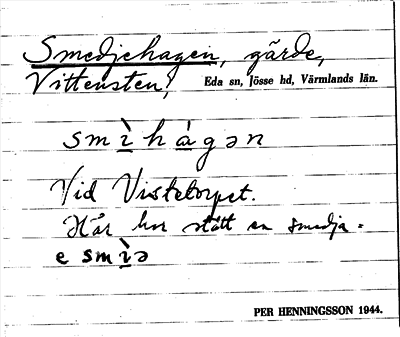 Smedjehagen, gärde,
Vittensten, Eda sn, Jösse hd, Värmlands län.
smı̱̀hà̱gən
Vid Vistetorpet.
Här har stått en smedja =
e smı̱̀ə
PER HENNINGSSON 1944.